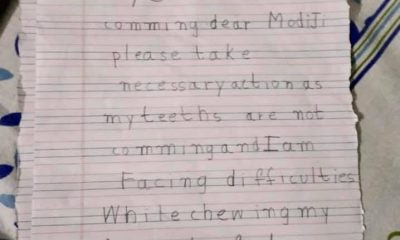 comming dear ModiJi
please take
necessary action as
my teeths are not
comming and I am
Facing difficulties
While chewing my